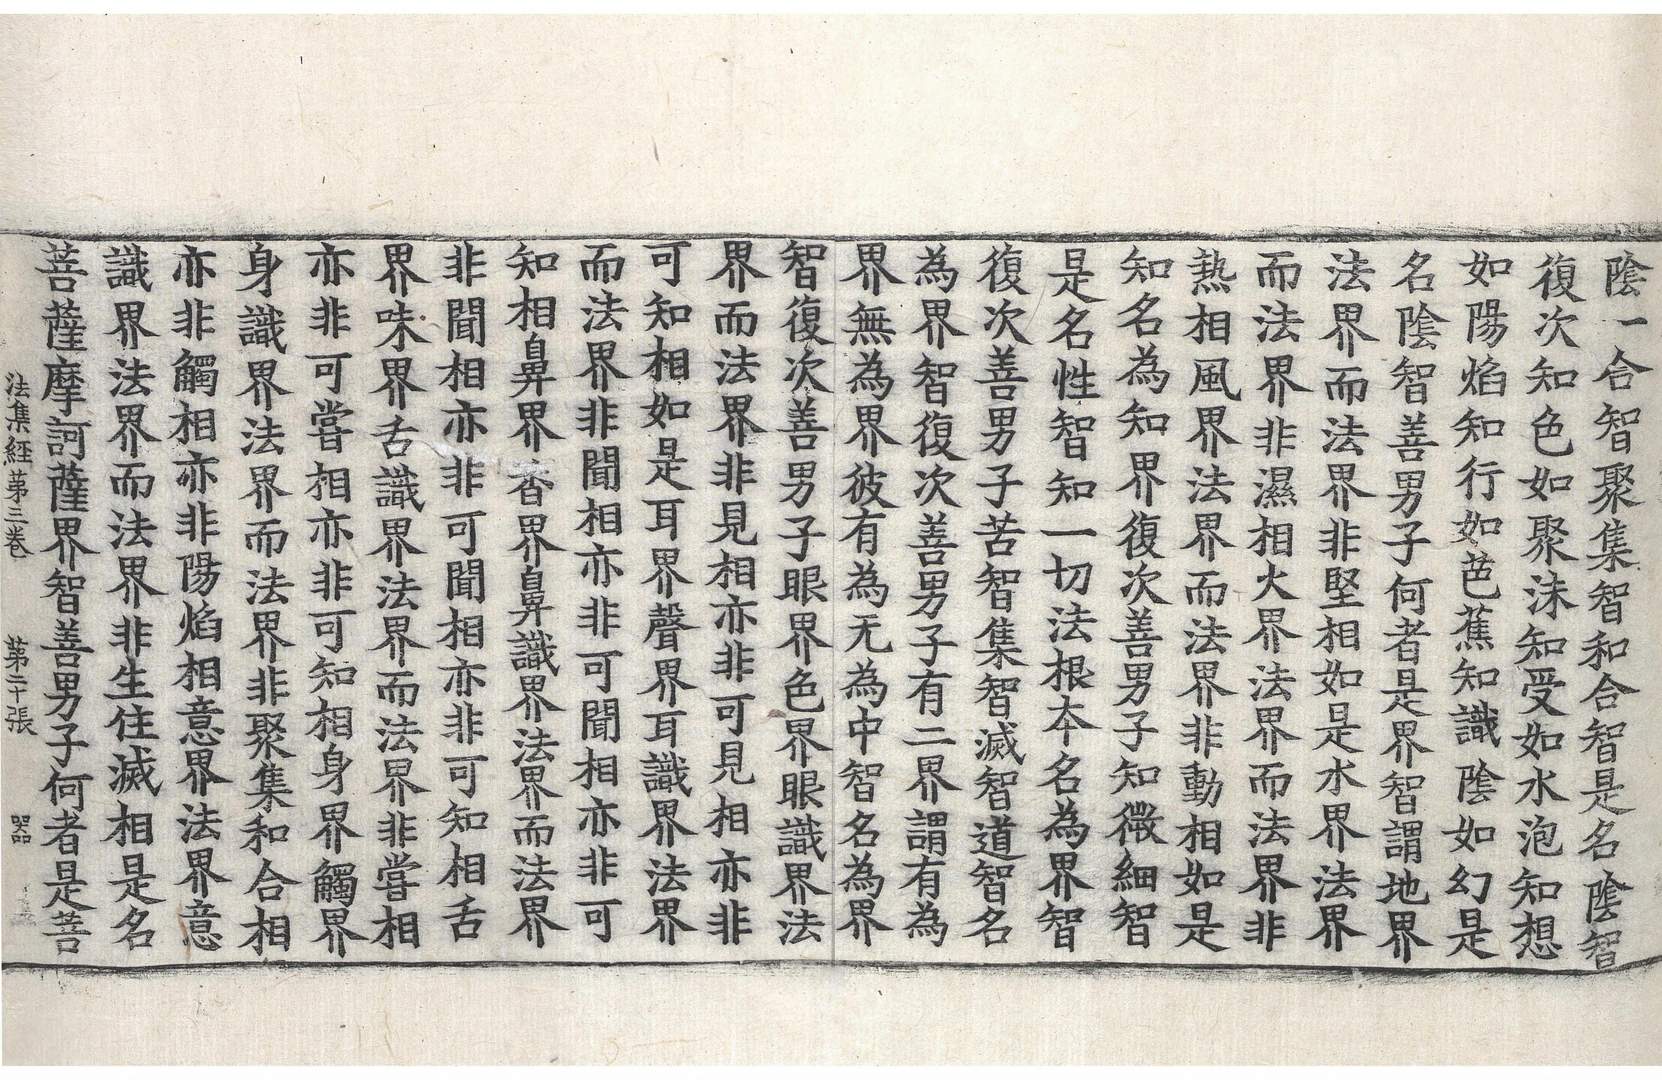 陰一合智聚集智和合智是名陰智
復次知色如聚沫知受如水泡知想
如陽焰知行如芭蕉知識陰如幻是
名陰智善男子何者是界智謂地界
法界而法界非堅相如是水界法界
而法界非濕相火界法界而法界非
熱相風界法界而法界非動相如是
知名為知界復次善男子知微細智
是名性智知一切法根本名為界智
復次善男子苦智集智滅智道智名
為界智復次善男子有二界謂有為
界無為界彼有為无為中智名為界
智復次善男子眼界色界眼識界法
界而法界非見相亦非可見相亦非
可知相如是耳界聲界耳識界法界
而法界非聞相亦非可聞相亦非可
知相鼻界香界鼻識界法界而法界
非聞相亦非可聞相亦非可知相舌
界味界舌識界法界而法界非嘗相
亦非可嘗相亦非可知相身界觸界
身識界法界而法界非聚集和合相
亦非觸相亦非陽焰相意界法界意
識界法界而法界非生住滅相是名
菩薩摩訶薩界智善男子何者是菩
法集經第三卷 第二十張 器